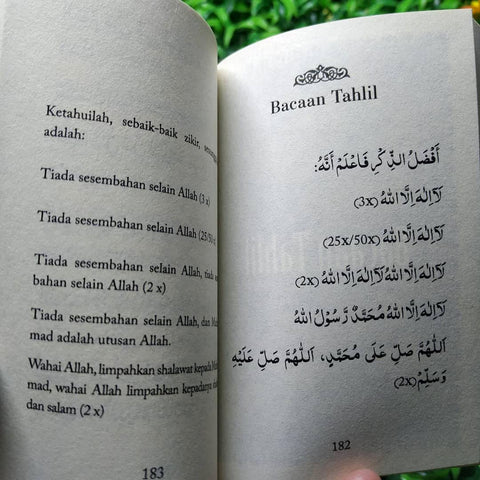 Bacaan Tahlil
أَفْضَلُ الذِّكْرِ فَاعْلَمْ أَنَّهُ:
لَآاِلٰهَ اِلَّا اللهُ (3x)
لَآاِلٰهَ اِلَّا اللهُ (25x/50x)
لَآاِلٰهَ اِلَّا اللهُ لَآاِلٰهَ اِلَّا اللهُ (2x)
لَآاِلٰهَ اِلَّا اللهُ مُحَمَّدٌ رَّسُوْلُ اللهُ
اَللّٰهُمَّ صَلِّ عَلَى مُحَمَّدٍ، اَللّٰهُمَّ صَلِّ عَلَيْهِ
وَسَلِّمْ (2x)
182
Ketahuilah, sebaik-baik zikir,
adalah:
Tiada sesembahan selain Allah (3 x)
Tiada sesembahan selain Allah
Tiada sesembahan selain Allah, tiada
bahan selain Allah (2 x)
Tiada sesembahan selain Allah, dan
mad adalah utusan Allah.
Wahai Allah, limpahkan shalawat kepada
mad, wahai Allah limpahkan kepadanya
dan salam (2 x)
183